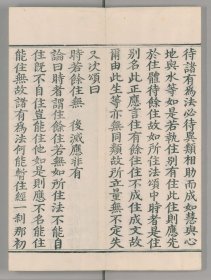 待諸有為法必待異類相助而成如慧與心
地與水等如是若執住別有住此住則應先
於住體待餘住故如所住法頌中時者是住
別名此正應言住有餘住住不成住成文故
爾由此生等亦無同類故所立量無不定失
又次頌曰
時若餘住無　後滅應非有
論曰時者謂住餘住若無如所住法不能自
住既不自住豈能住他如是則應不名能住
能住無故諸有為法何能暫住經一剎那初